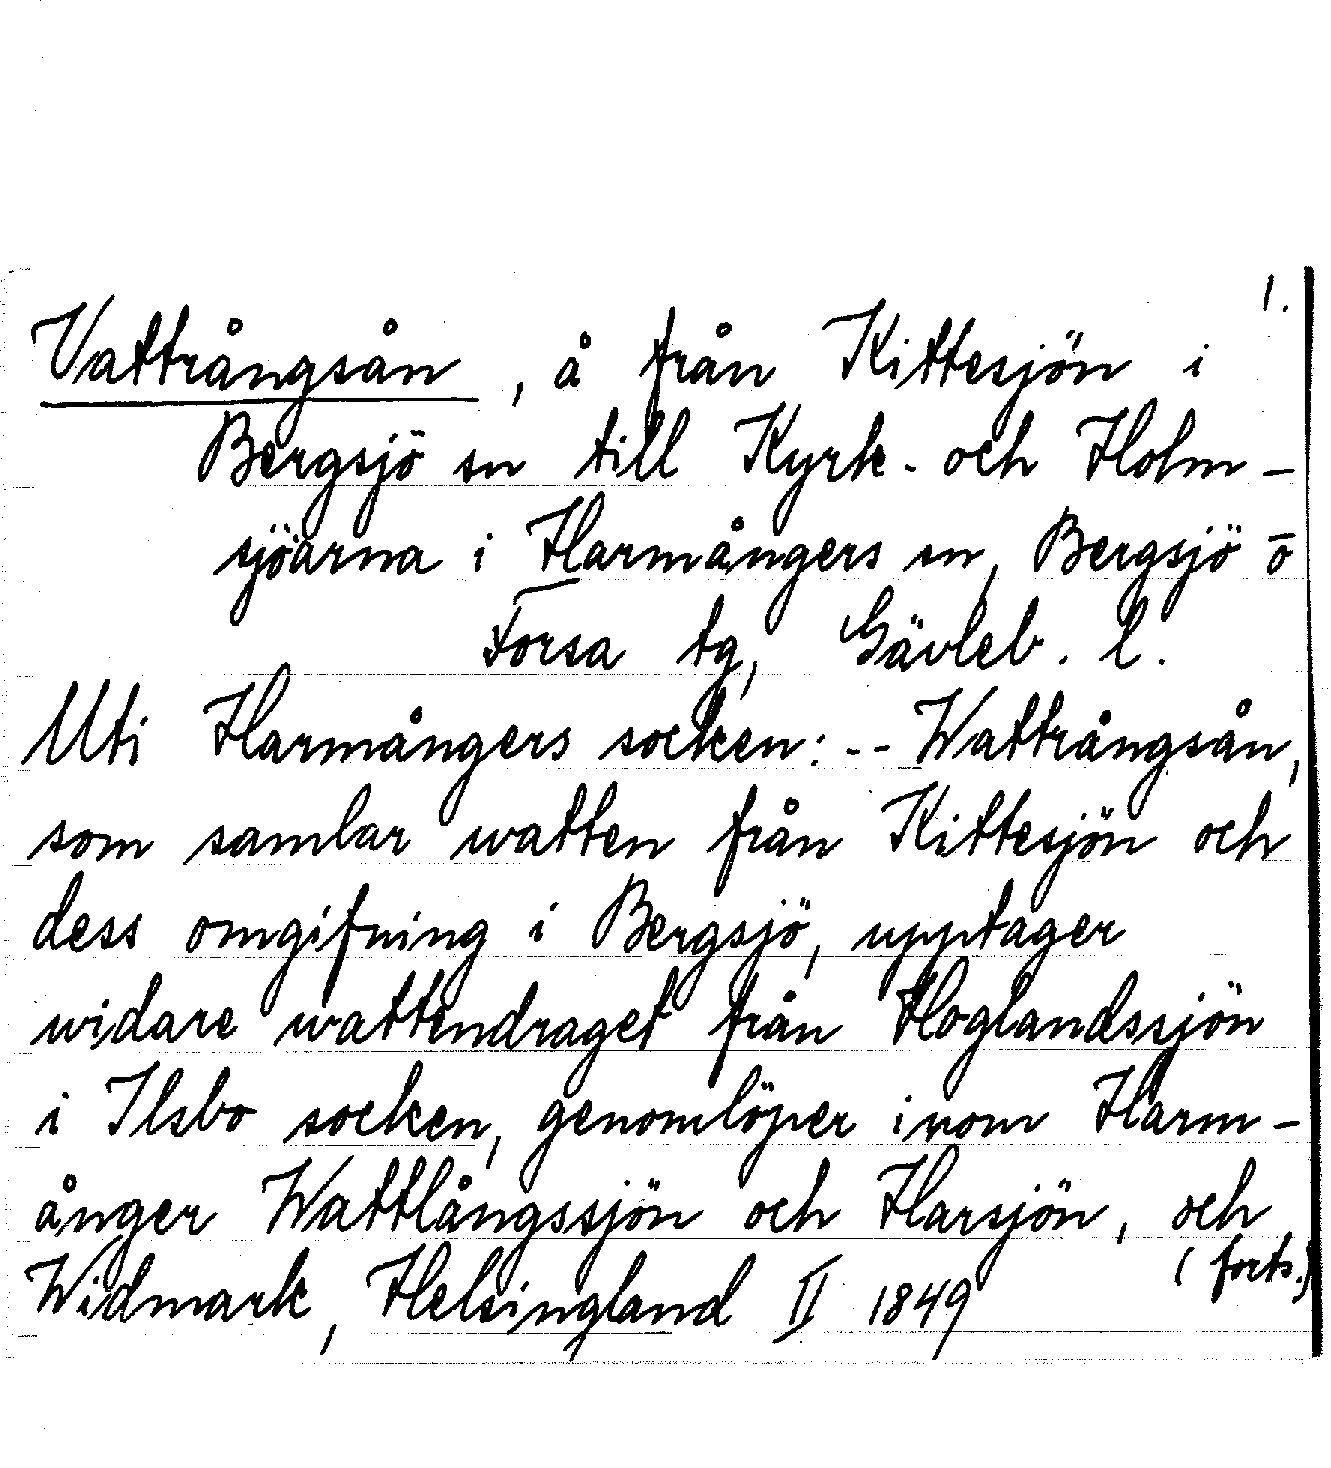 1.
Vattrångsån, å från Kittesjön i
Bergsjö sn till Kyrk- och Holm-
sjöarna i Harmångers sn, Bergsjö o
Forsa tg, Gävleb. l.
Uti Harmångers socken: -- Wattrångsån,
som samlar watten från Kittesjön och
dess omgifning i Bergsjö, upptager
widare wattendraget från Hoglandssjön
i Ilsbo socken, genomlöper inom Harm-
ånger Wattlångssjön och Harsjön, och
(forts.)
Widmark, Helsingland II 1849